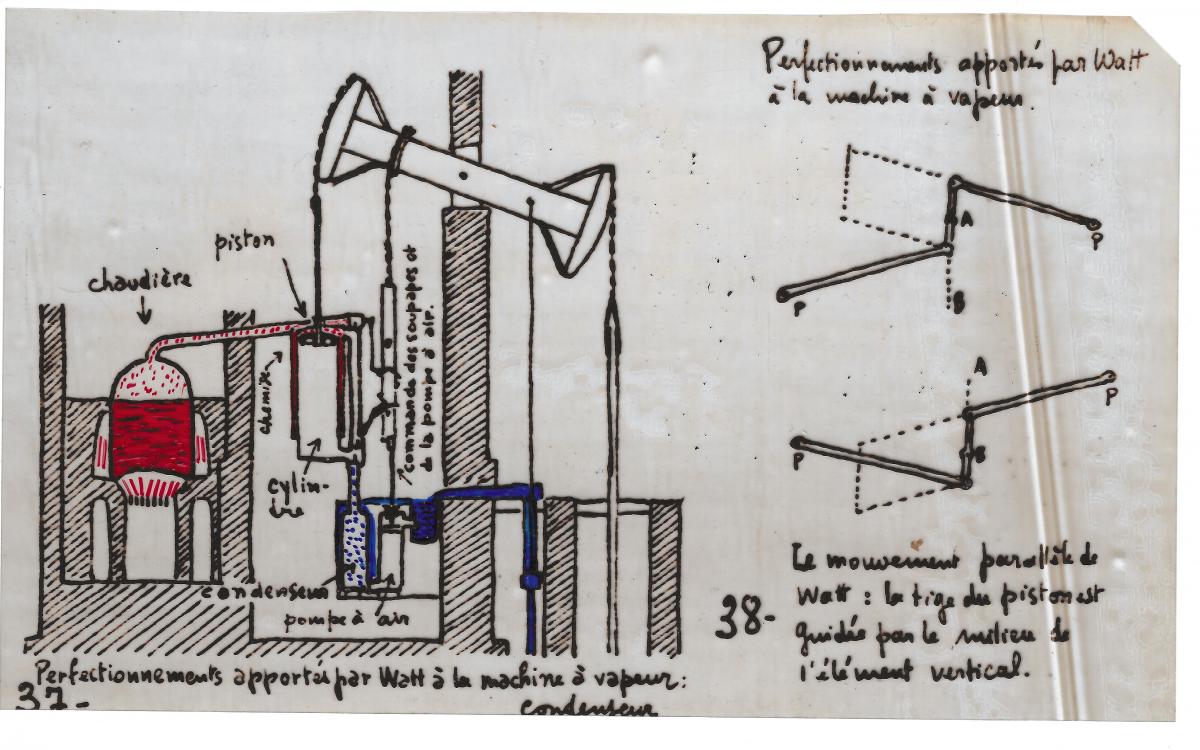 piston
chaudière
chemise
cylin-
dre
commande des soupapes et
de la pompe à air.
condenseur
pompe à air
Perfectionnements apportés par Watt à la machine à vapeur :
condenseur
37-
Perfectionnements apportés par Watt
à la machine à vapeur.
A
P
P
B
A
P
P
B
38-
Le mouvement parallèle de
Watt : la tige du piston est
guidée par le milieu de
l'élément vertical.